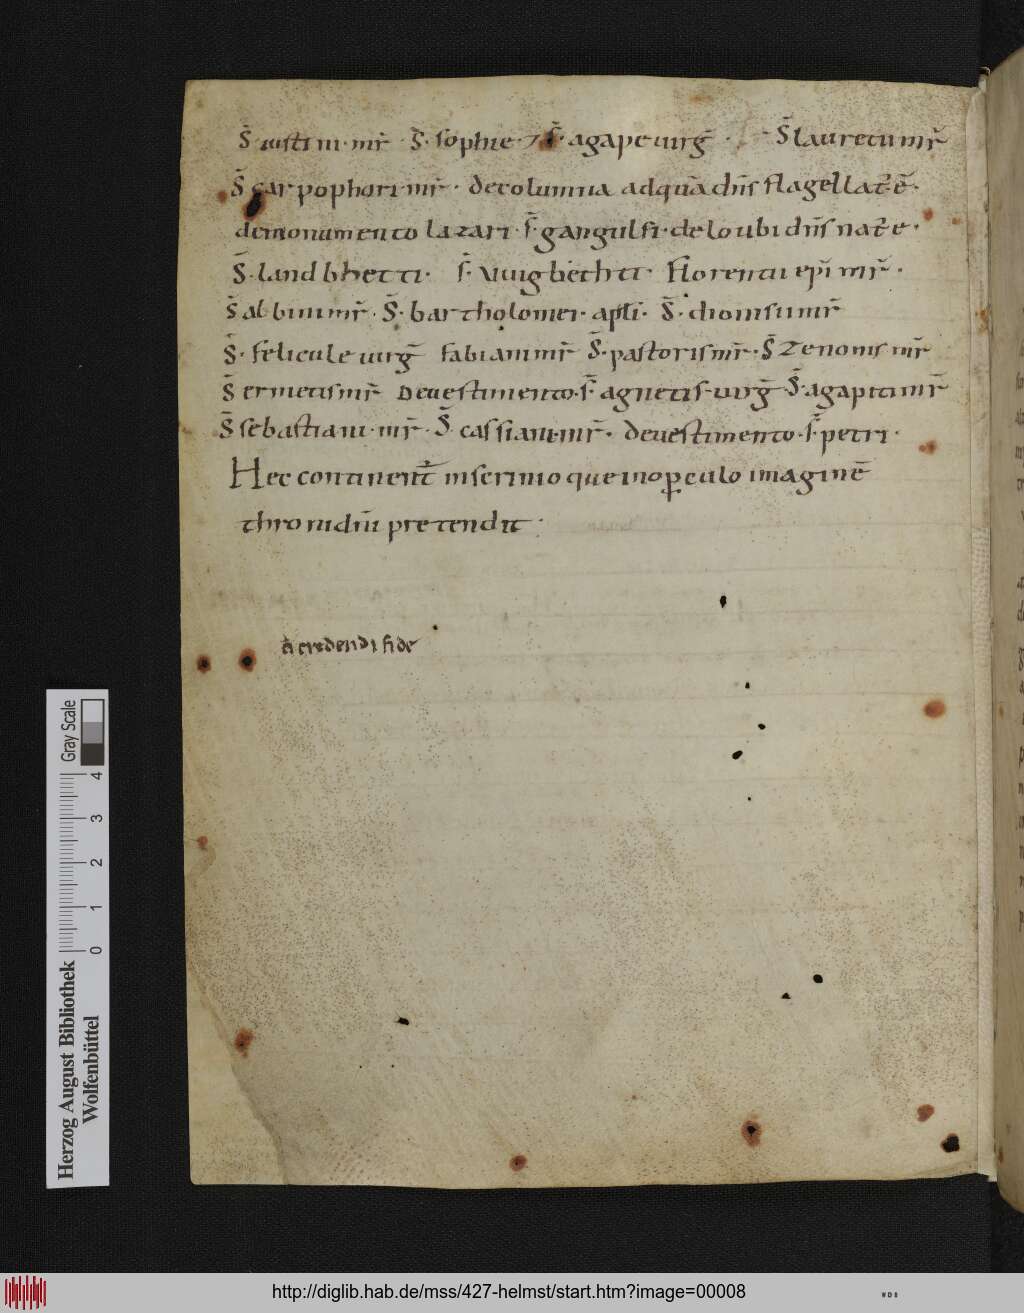 S̄ iustini · mr̄ · S̄ · sophie · ⁊ S̄ · agape uirḡ · S̄ laurētii mr̄
S̄ carpophori mr̄ · de columna ad quā dn̄s flagellat̄ ē ·
de monumento lazari · S̄ gangulfi · de lo ubi dn̄s nat̄ e ·
S̄ · landbhetti · S̄ Uuigbèchti · Florentii epī mr̄ ·
S̄ albini mr̄ · S̄ · bartholomei · apl̄i · S̄ · dionisii mr̄
S̄ · felicule uirḡ fabiani mr̄ S̄ · pastoris mr̄ · S̄ Zenonis mr̄
S̄ ermetis mr̄ De uestimento · S̄ agnetis · uirḡ S̄ · agapiti mr̄
S̄ sebastiani · mr̄ · S̄ cassiani · mr̄ · de uestimento · S̄ petri ·
Hec continent̄ in scrinio que in oꝑculo imaginē
throni dn̄i pretendit ·
credendi fide
Gray Scale
4 3 2 1 0
Herzog August Bibliothek
Wolfenbüttel
http://diglib.hab.de/mss/427-helmst/start.htm?image=00008